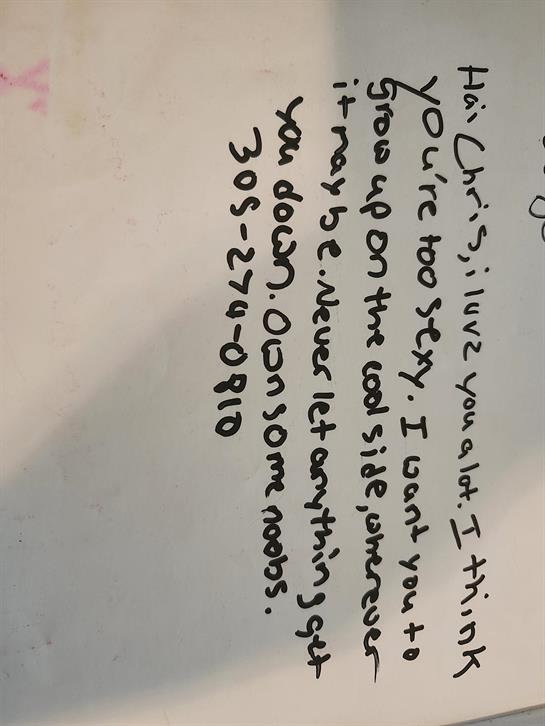 Hai Chris, i luvz you a lot. I think
you're too sexy. I want you to
grow up on the cool side, wherever
it may be. Never let anything get
you down. Own some noobs.
305-274-0810